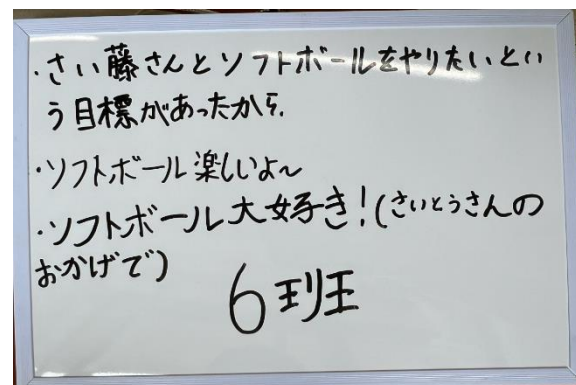 ・さい藤さんとソフトボールをやりたいとい
う目標があったから。
・ソフトボール楽しいよ～
・ソフトボール大好き！(さいとうさんの
おかげで)
6班